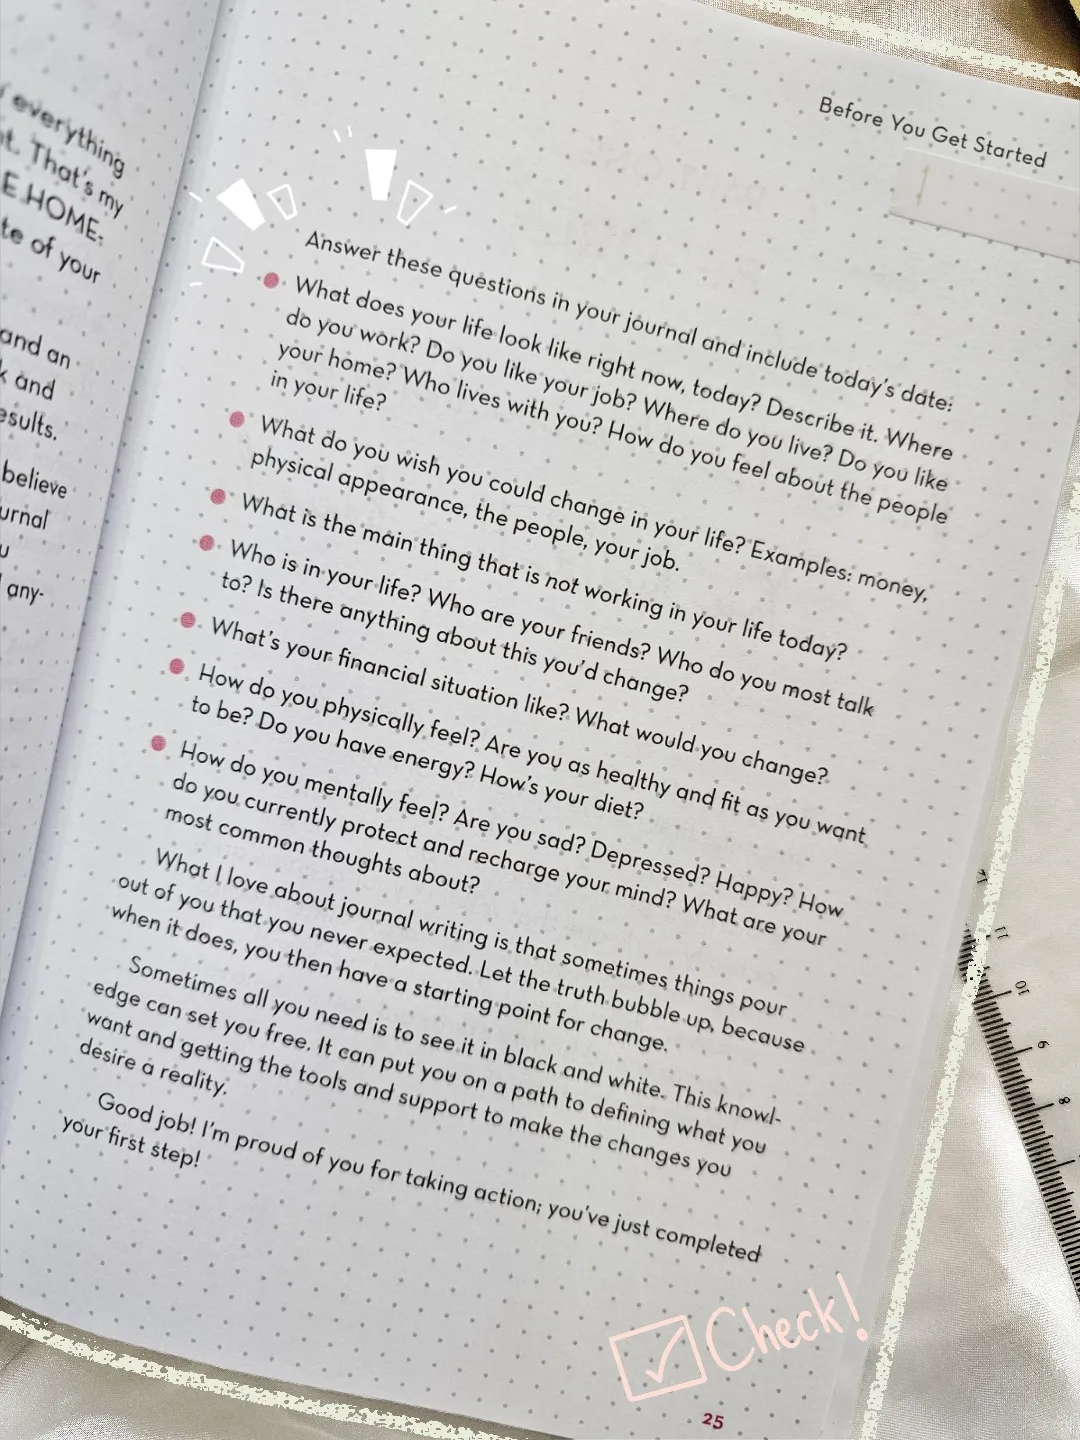 everything
t. That's my
E HOME-
te of your
and an
k and
esults.
believe
urnal
u
any-
Before You Get Started
Answer these questions in your journal and include today's date:
What does your life look like right now, today? Describe it. Where
do you work? Do you like your job? Where do you live? Do you like
your home? Who lives with you? How do you feel about the people
in your life?
What do you wish you could change in your life? Examples: money,
physical appearance, the people, your job.
What is the main thing that is not working in your life today?
Who is in your life? Who are your friends? Who do you most talk
to? Is there anything about this you'd change?
What's your financial situation like? What would you change?
How do you physically feel? Are you as healthy and fit as you want
to be? Do you have energy? How's your diet?
How do you mentally feel? Are you sad? Depressed? Happy? How
do you currently protect and recharge your mind? What are your
most common thoughts about?
What I love about journal writing is that sometimes things pour
out of you that you never expected. Let the truth bubble up, because
when it does, you then have a starting point for change.
Sometimes all you need is to see it in black and white. This knowl-
edge can set you free. It can put you on a path to defining what you
want and getting the tools and support to make the changes you
desire a reality.
Good job! I'm proud of you for taking action; you've just completed
your first step!
Check!
25
11
10
9
8